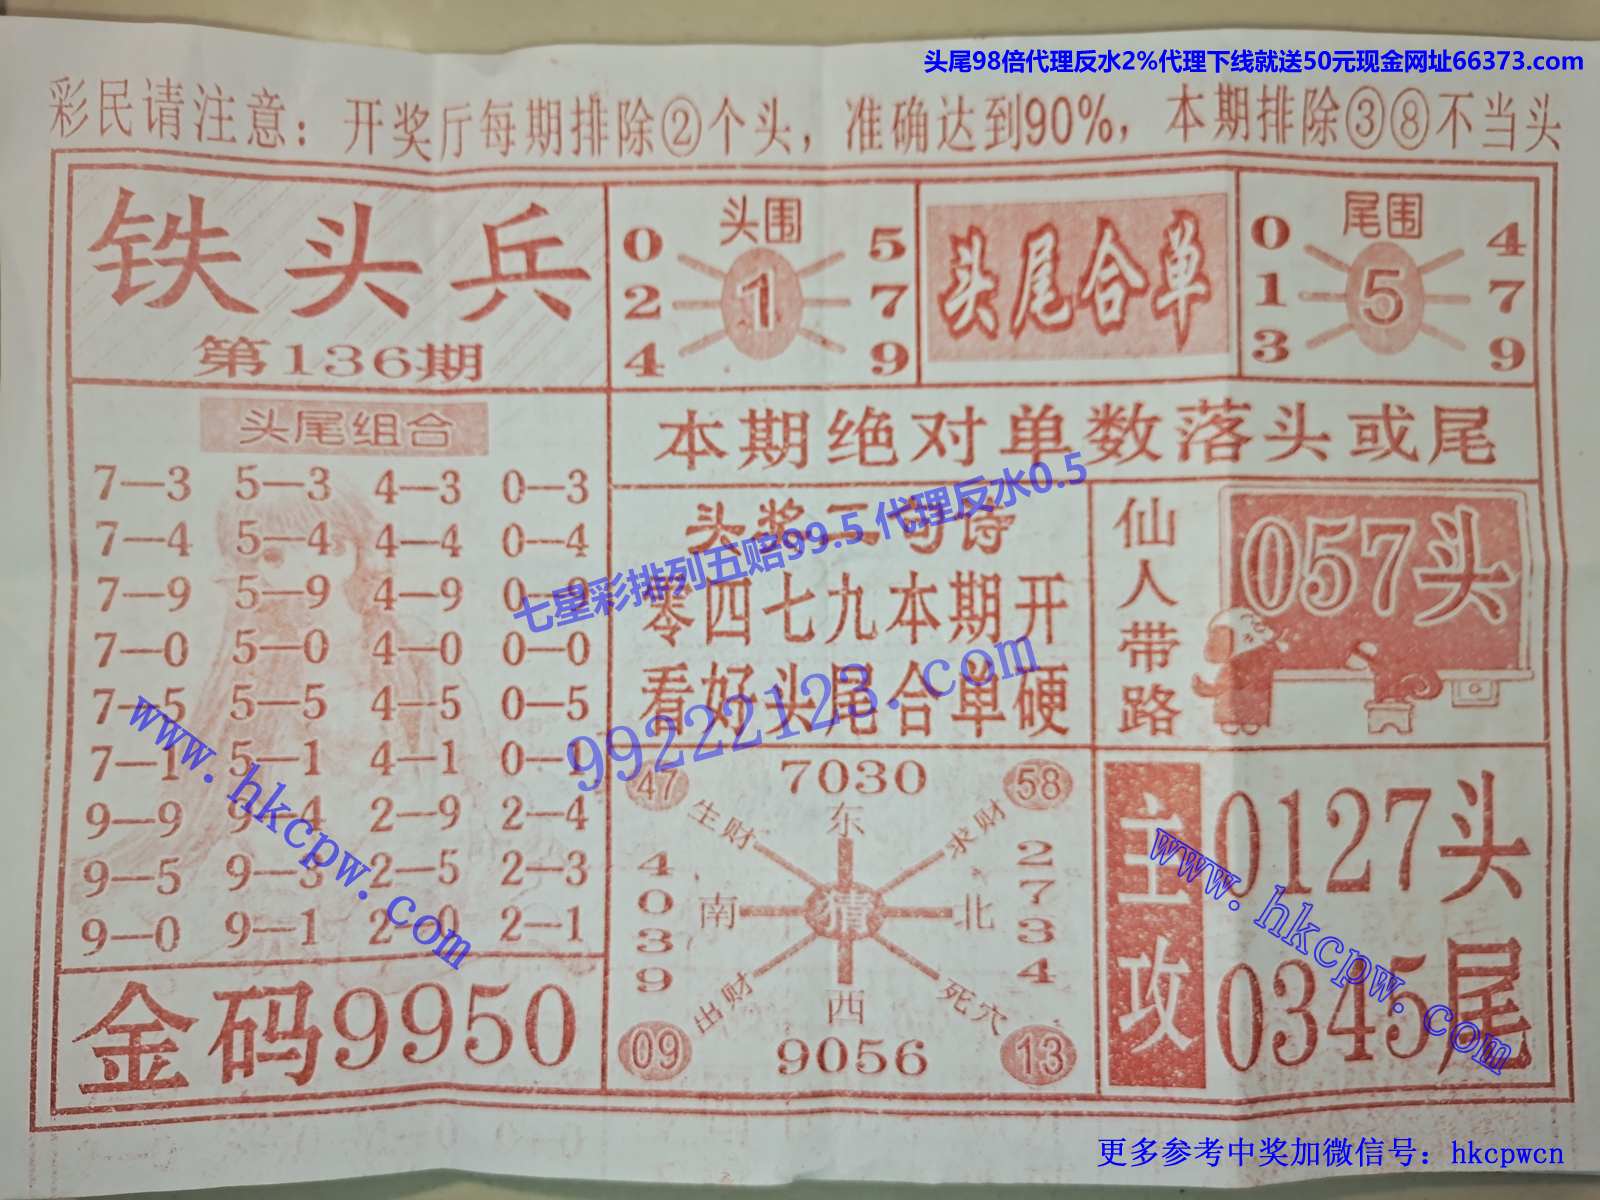 头尾98倍代理反水2%代理下线就送50元现金网址66373.com
彩民请注意：开奖厅每期排除②个头，准确达到90%，本期排除③⑧不当头
铁头兵
第136期
头围
0 5
2 1 7
4 9
头尾合单
尾围
0 4
1 5 7
3 9
本期绝对单数落头或尾
头尾组合
7—3 5—3 4—3 0—3
7—4 5—4 4—4 0—4
7—9 5—9 4—9 0—9
7—0 5—0 4—0 0—0
7—5 5—5 4—5 0—5
7—1 5—1 4—1 0—1
9—9 9—4 2—9 2—4
9—5 9—3 2—5 2—3
9—0 9—1 2—0 2—1
金码9950
头奖二句诗
零四七九本期开
看好头尾合单硬
七星彩排列五赔99.5 代理反水0.5
99222123.com
仙人带路
057头
47 7030 58
生财 东 求财
4039
南 猜 北
2734
出财 西 死穴
09 9056 13
主攻
0127头
0345尾
www.hkcpw.com
www.hkcpw.com
更多参考中奖加微信号：hkcpwcn